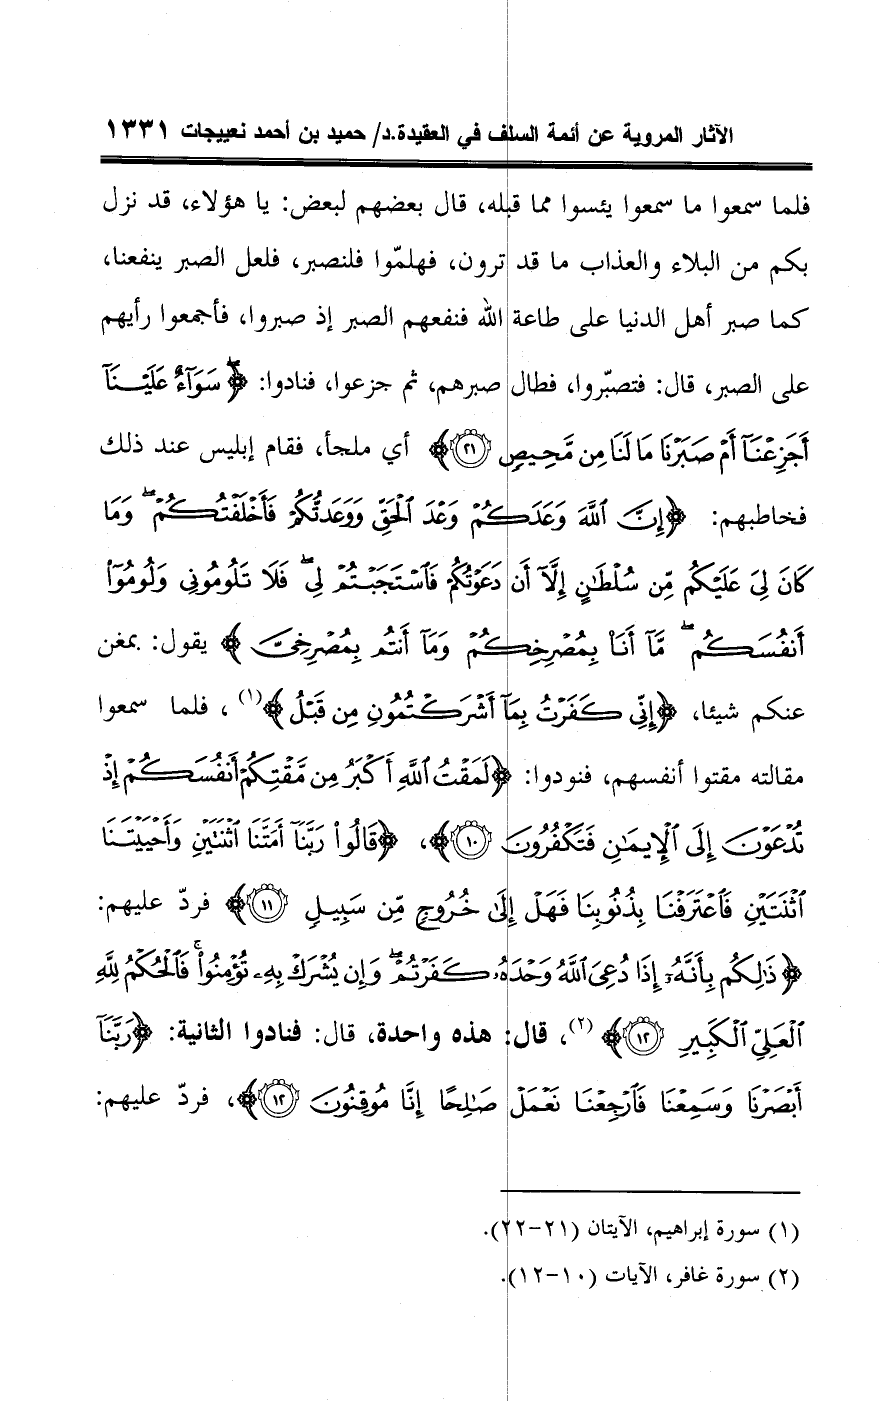 الآثار المروية عن أئمة السلف في العقيدة.د/ حميد بن أحمد نعييجات ١٣٣١
فلما سمعوا ما سمعوا يئسوا مما قبله، قال بعضهم لبعض: يا هؤلاء، قد نزل
بكم من البلاء والعذاب ما قد ترون، فهلمّوا فلنصبر، فلعل الصبر ينفعنا،
كما صبر أهل الدنيا على طاعة الله فنفعهم الصبر إذ صبروا، فأجمعوا رأيهم
على الصبر، قال: فتصبّروا، فطال صبرهم، ثم جزعوا، فنادوا: ﴿ۖ سَوَآءٌ عَلَيْنَآ
أَجَزِعْنَآ أَمْ صَبَرْنَا مَا لَنَا مِن مَّحِيصٍ ٢١﴾ أي ملجأ، فقام إبليس عند ذلك
فخاطبهم: ﴿إِنَّ ٱللَّهَ وَعَدَكُمْ وَعْدَ ٱلْحَقِّ وَوَعَدتُّكُمْ فَأَخْلَفْتُكُمْ ۖ وَمَا
كَانَ لِىَ عَلَيْكُم مِّن سُلْطَٰنٍ إِلَّآ أَن دَعَوْتُكُمْ فَٱسْتَجَبْتُمْ لِى ۖ فَلَا تَلُومُونِى وَلُومُوٓا۟
أَنفُسَكُم ۖ مَّآ أَنَا۠ بِمُصْرِخِكُمْ وَمَآ أَنتُم بِمُصْرِخِىَّ ﴾ يقول: بمغن
عنكم شيئا، ﴿إِنِّى كَفَرْتُ بِمَآ أَشْرَكْتُمُونِ مِن قَبْلُ ﴾(١)، فلما سمعوا
مقالته مقتوا أنفسهم، فنودوا: ﴿لَمَقْتُ ٱللَّهِ أَكْبَرُ مِن مَّقْتِكُمْ أَنفُسَكُمْ إِذْ
تُدْعَوْنَ إِلَى ٱلْإِيمَٰنِ فَتَكْفُرُونَ ١٠﴾، ﴿قَالُوا۟ رَبَّنَآ أَمَتَّنَا ٱثْنَتَيْنِ وَأَحْيَيْتَنَا
ٱثْنَتَيْنِ فَٱعْتَرَفْنَا بِذُنُوبِنَا فَهَلْ إِلَىٰ خُرُوجٍ مِّن سَبِيلٍ ١١﴾ فردّ عليهم:
﴿ذَٰلِكُم بِأَنَّهُۥٓ إِذَا دُعِىَ ٱللَّهُ وَحْدَهُۥ كَفَرْتُمْ ۖ وَإِن يُشْرَكْ بِهِۦ تُؤْمِنُوا۟ ۚ فَٱلْحُكْمُ لِلَّهِ
ٱلْعَلِىِّ ٱلْكَبِيرِ ١٢﴾(٢)، قال: هذه واحدة، قال: فنادوا الثانية: ﴿رَبَّنَآ
أَبْصَرْنَا وَسَمِعْنَا فَٱرْجِعْنَا نَعْمَلْ صَٰلِحًا إِنَّا مُوقِنُونَ ١٢﴾، فردّ عليهم:
(١) سورة إبراهيم، الآيتان (٢١-٢٢).
(٢) سورة غافر، الآيات (١٠-١٢).